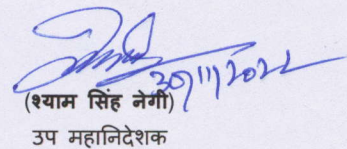 30/11/2022
(श्याम सिंह नेगी)
उप महानिदेशक